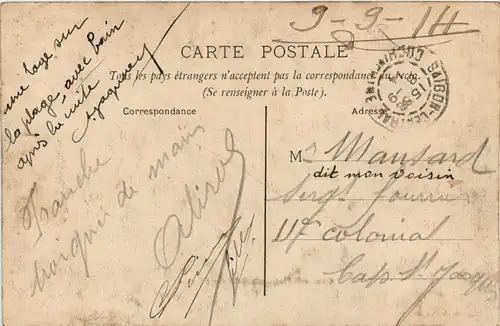 9-9-14
CARTE POSTALE
Tous les pays étrangers n'acceptent pas la correspondance au recto.
(Se renseigner à la Poste).
Correspondance
Adresse
SAIGON-CENTRAL
COCHINCHINE
une loge sur
la plage, avec bain
après la cuite
Franche
poignée de main
Mr Mansard
dit mon voisin
Sergt fourrier
11e colonial
Cap St Jacques